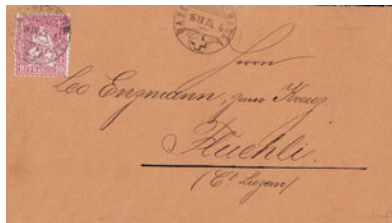 Herrn
Leo Enzmann, zum Kreuz
Fluehli.
(Ct. Luzern)